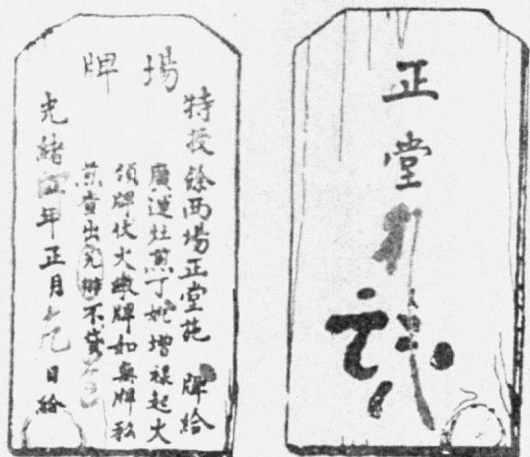 場牌
特授餘西場正堂范 牌給
廣運灶煎丁姚增祿起火
領牌伏火繳牌如無牌私
煎查出究辦不貸
光緒 年正月 日給
正堂